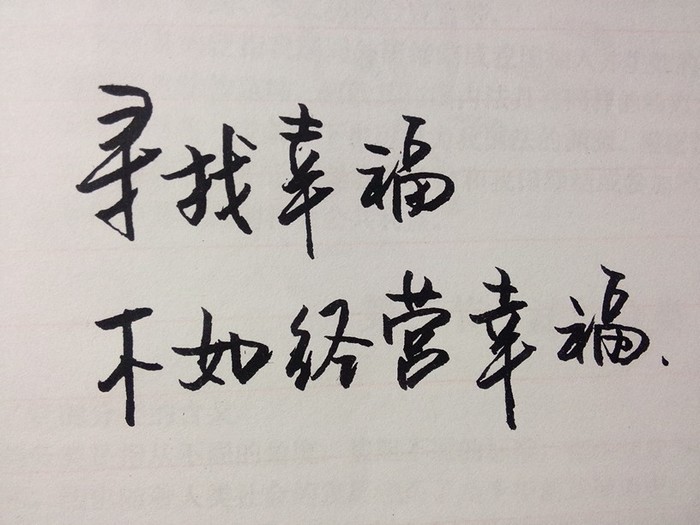 寻找幸福
不如经营幸福.